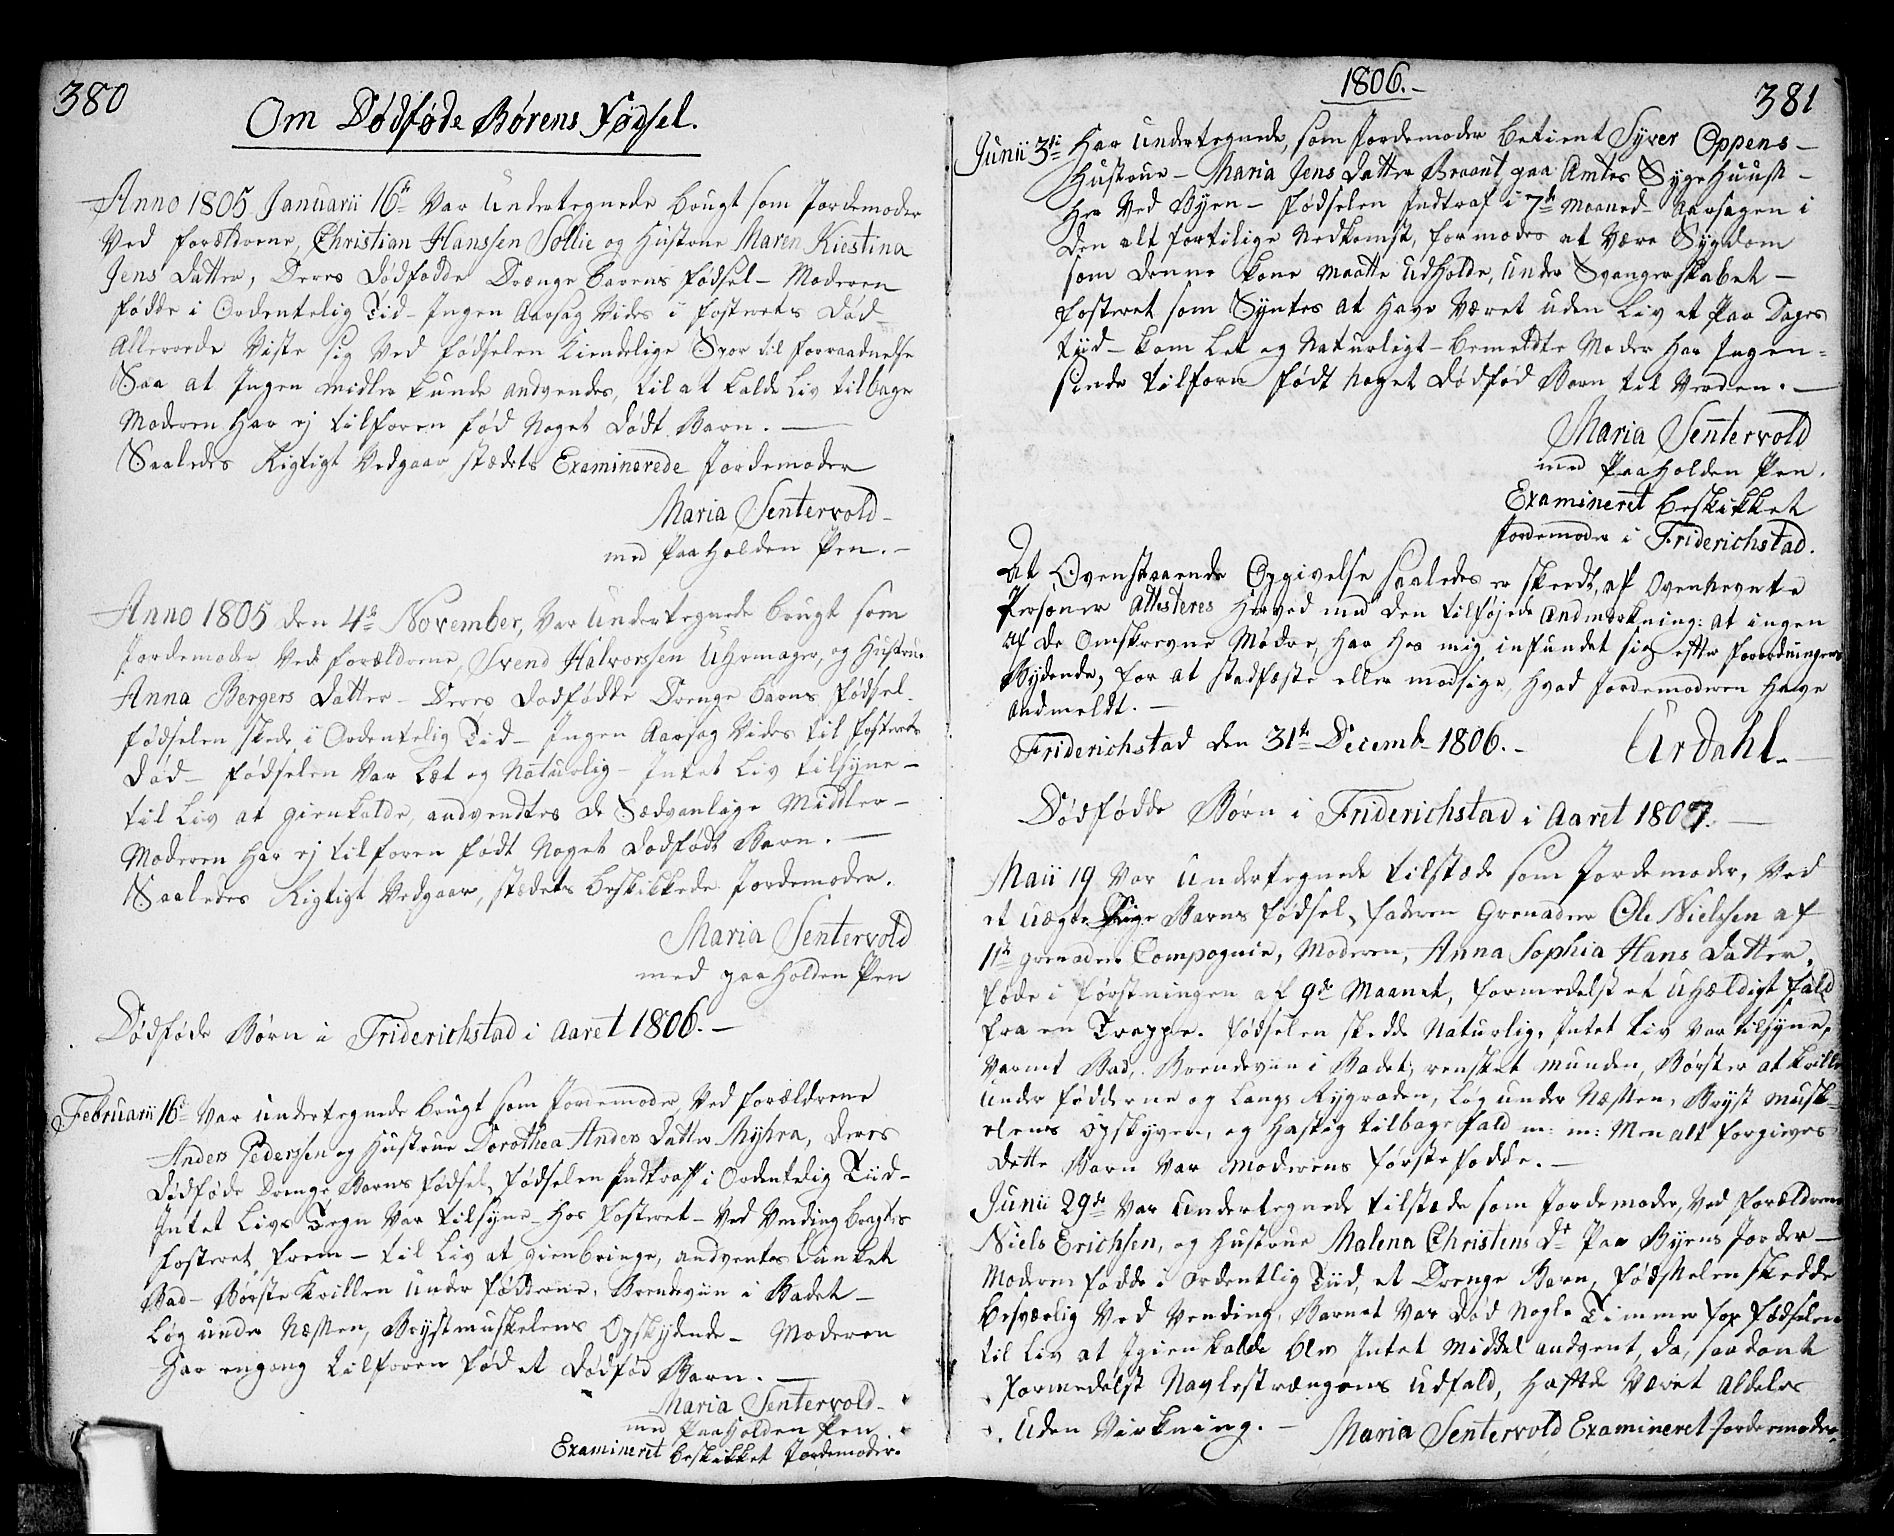 380
Om Dødføde Børens Fødsel.
Anno 1805 Januarii 16de Var Undertegnede brugt som Jordemoder
Ved forældrene, Christian Hanssen Sollie og Hustrue Maren Kiestina
Jens Datter, Deres Dødfødde Drænge barens fødsel - Moderen
fødde i Ordentelig Tid - Ingen Aarsag Vides i fosterets Død -
Allerrede Viste sig Ved fødselen Kiendelige Spor til forraadnelse
Saa at Ingen midler kunde andvendes, til at kalde Liv tilbage
Moderen har ej tilforen fød Noget Dødt Barn. -
Saaledes Rigtigt Vedgaar stædets Examinerede Jordemoder
Maria Sentervold -
med Paaholden Pen. -
Anno 1805 den 4de November, Var Undertegnede brugt som
Jordemoder Ved forældrene, Svend Halvorssen Uhrmager, og Hustrue
Anna Bergers Datter - Deres Dødfødde Drenge barns fødsel -
fødselen skede i Ordentelig Tid - Ingen Aarsag Vides til fosterets
Død - fødselen Var Læt og Naturlig - Intet Liv tilsyne -
til Liv at gienkalde, andvendtes de Sædvanlige Midler -
Moderen har ej tilforen født Noget Dødfødt Barn. -
Saaledes Rigtigt Vedgaar, stædets beskikkede Jordemoder.
Maria Sentervold
med paaholden Pen
Dødføde Børn i Friderichstad i Aaret 1806. -
Februarii 16de Var undertegnede brugt som Jordemoder, Ved forældrene
Anders Pederssen og Hustrue Dorothea Anders Datter Myhra, deres
Dødføde Drenge Barns fødsel, fødselen Indtraff i Ordentelig Tiid -
Intet Livs Tegn Var tilsyne - hos fosteret - Ved Vending bragtes
fosteret frem - til Liv at gienbringe, andventes Lunket
Bad - Børste Krillen under føderne, Brendeviin i Badet -
Løg under Næsen, Brystmuskelens Opskydende - Moderen
har engang tilforen fød et Dødfød Barn. -
Maria Sentervold -
med Paaholden Pen
Examineret beskikket Jordemoder.
1806. -
381
Junii 3die Har Undertegnede, som Jordemoder betient Syver Oppens -
Hustrue - Maria Jens Datter Braant paa Amtes Sygehuust -
her Ved Byen - fødselen Indtraf i 7de Maaned - Aarsagen i
den alt fortilige Nedkomst, formodes at Være Sygdom
som denne kone maatte udholde, under Svangerskabet -
fosteret som Syntes at have Været uden Liv et Par Dages
tiid - kom Let og Naturligt - bemeldte Moder har Ingen-
sinde tilforn født noget Dødfød Barn til Verden. -
Maria Sentervold
med Paaholden Pen.
Examineret beskikket
Jordemoder i Friderichstad.
At Ovenstaaende Opgivelse saaledes er skeedt, af Ovennevnte
Personer Attesteres herved med den tilføjede Andmerkning: at ingen
af de Omskrevne Mødre, har hos mig infundet sig efter forordningens
Bydende, for at stadfæste eller modsige, hvad Jordemoderen have
andmeldt. -
Friderichstad den 31te Decembr 1806. -
Urdahl. -
Dødfødde Børn i Friderichstad i Aaret 1807. -
Maii 19 Var Undertegnede tilstæde som Jordemoder, Ved
et uægte Pige Barns fødsel, faderen Grenader Ole Nielssen af
1ste grenader Compagnie, Moderen, Anna Sophia Hans Datter,
føde i førstningen af 9de Maanet, formedelst et Uhældigt fald
fra en Trappe. fødselen skedde Naturlig, Intet Liv var tilsyne,
Varmt Bad, Brendeviin i Badet, rensket munden, Børster at krille
under fødderne og Langs Rygraden, Løg under Næsen, Bryst musk-
elens opskyven, og hastig tilbage fald m: m: Men alt forgieves
Dette Barn Var Moderens førstefødde. -
Junii 29de Var Undertegnede tilstede som Jordemoder, Ved forældrene
Niels Erichsen, og Hustrue Malena Christens Dr Paa Byens Jorder -
Moderen fødde i Ordentlig Tiid, et Drenge Barn, fødselen skedde
besværlig Ved Vending, Barnet Var Død Nogle Timmer for fødselen
til Liv at Igienkalde blev Intet Middel andvent, da, saadant
formedelst Navlestrængens udfald, hafde Været aldeles
uden Virkning. - Maria Sentervold Examineret Jordermoder.